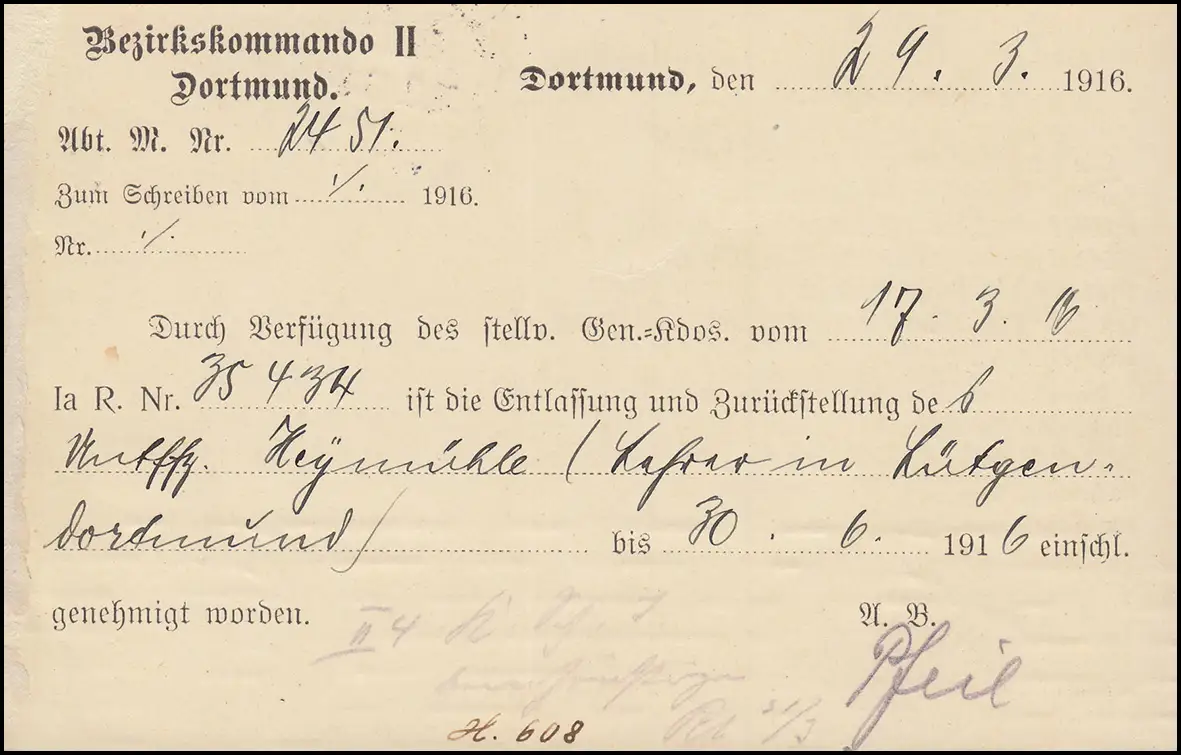 Bezirkskommando II
Dortmund.
Dortmund, den 29. 3. 1916.
Abt. M. Nr. 2451.
Zum Schreiben vom ./. 1916.
Nr. ./.
Durch Verfügung des stellv. Gen.-Kdos. vom 17. 3. 16
Ia R. Nr. 35434 ist die Entlassung und Zurückstellung des
Untffz. Heÿmühle (Lehrer in Lütgen-
dortmund) bis 30. 6. 1916 einschl.
genehmigt worden.
A. B.
Pfeil
II 4
31/3
H. 608